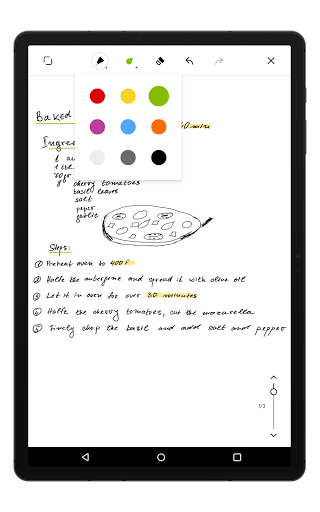 Baked
40 min
Ingre
1 au
cherry tomatoes
basil leaves
salt
peper
garlic
Steps:
① Preheat oven to 400F
② Halfe the aubergine and spread it with olive oil
③ Let it in oven for over 30 minutes
④ Halfe the cherry tomatoes, cut the mozarella
⑤ Finely chop the basil and add salt and pepper
1/3